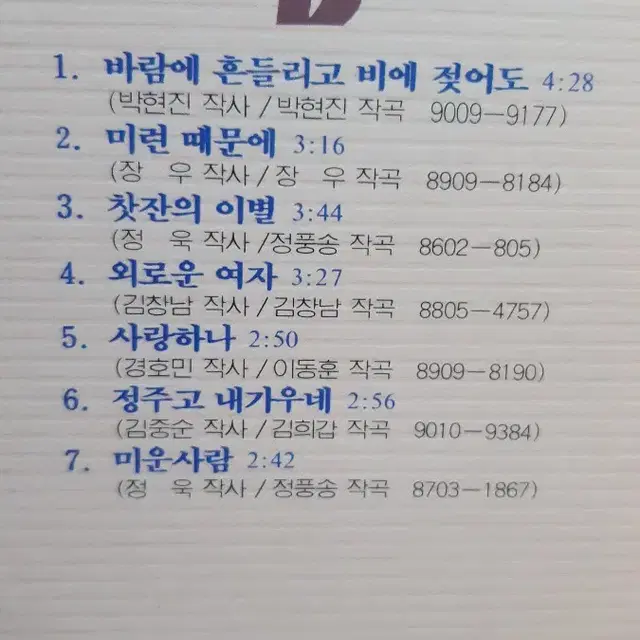 1. 바람에 흔들리고 비에 젖어도 4:28
(박현진 작사 / 박현진 작곡 9009-9177)
2. 미련 때문에 3:16
(장 우 작사 / 장 우 작곡 8909-8184)
3. 찻잔의 이별 3:44
(정 욱 작사 / 정풍송 작곡 8602-805)
4. 외로운 여자 3:27
(김창남 작사 / 김창남 작곡 8805-4757)
5. 사랑하나 2:50
(경호민 작사 / 이동훈 작곡 8909-8190)
6. 정주고 내가우네 2:56
(김중순 작사 / 김희갑 작곡 9010-9384)
7. 미운사람 2:42
(정 욱 작사 / 정풍송 작곡 8703-1867)